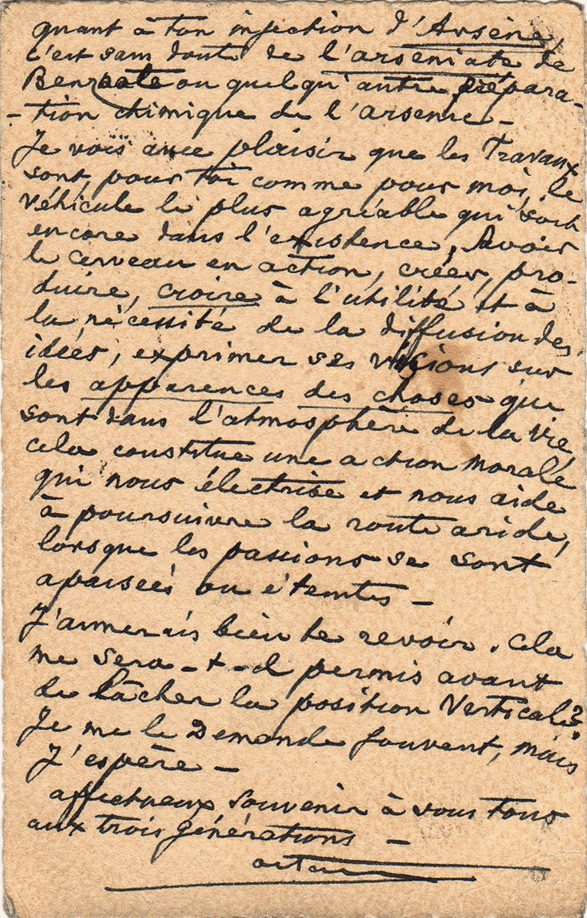 quant à ton injection d'Arsène,
c'est sans doute de l'arséniate de
Benzoate ou quelqu'autre prépara-
-tion chimique de l'arsenic -
Je vois avec plaisir que les Travaux
sont, pour toi comme pour moi, le
véhicule le plus agréable qui soit
encore dans l'existence, Avoir
le cerveau en action, créer, pro-
duire, croire à l'utilité et à
la nécessité de la diffusion des
idées, exprimer ses visions sur
les apparences des choses que
sont dans l'atmosphère de la vie
cela constitue une action morale
qui nous électrise et nous aide
à poursuivre la route aride,
lorsque les passions se sont
apaisées ou éteintes -
J'aimerais bien te revoir. cela
me sera-t-il permis avant
de lâcher la position Verticale?
Je me le Demande souvent, mais
J'espère -
affectueux souvenir à vous tous
aux trois générations -